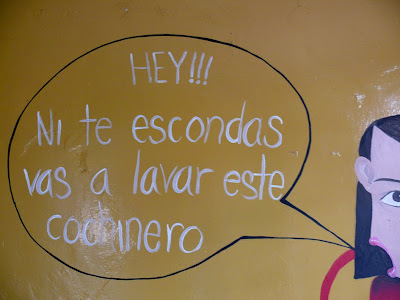 HEY!!!
Ni te escondas
vas a lavar este
cochinero